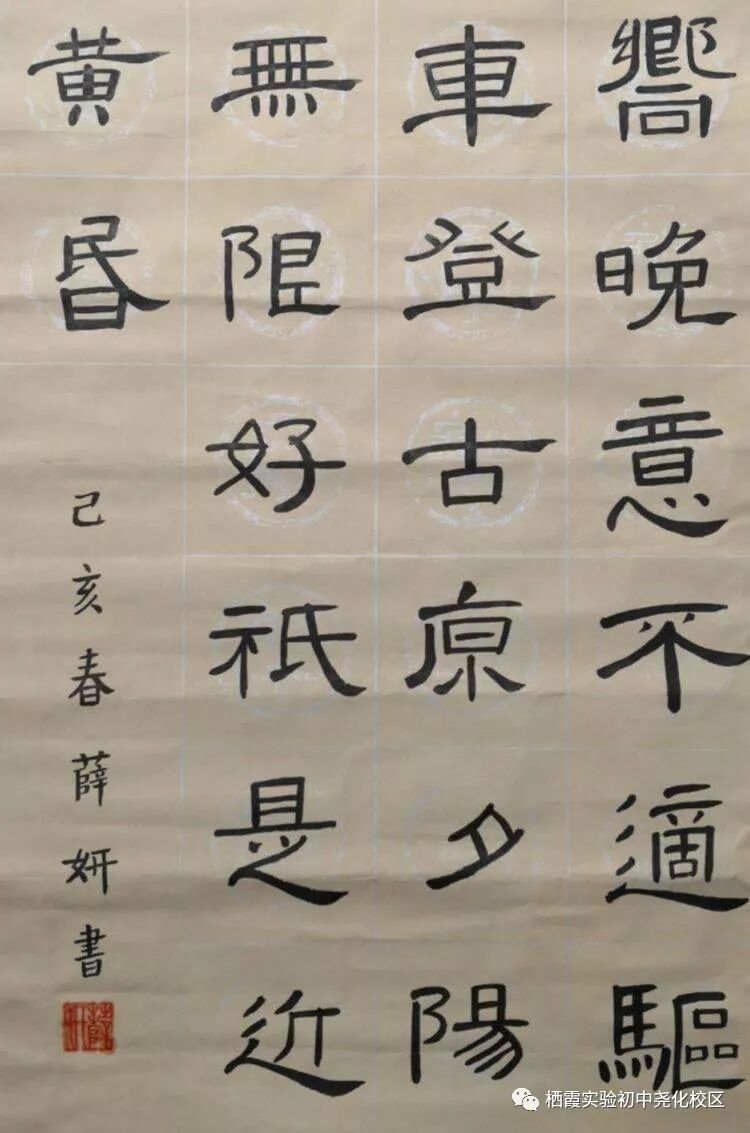 嚮晚意不適驅
車登古原夕陽
無限好祇是近
黄昏
己亥春薛妍書
栖霞实验初中尧化校区